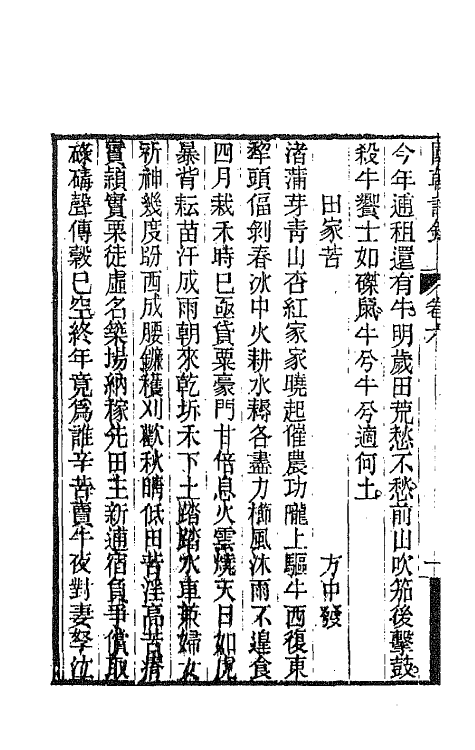 國朝詩鐸 卷六
今年逋租還有牛明歲田荒愁不愁前山吹笳後擊鼓
殺牛饗士如磔鼠牛兮牛兮適何土
田家苦 方中發
渚蒲芽青山杏紅家家曉起催農功隴上驅牛西復東
犂頭偪剝春冰中火耕水耨各盡力櫛風沐雨不遑食
四月栽禾時已亟貸粟豪門甘倍息火雲燒天日如虎
暴背耘苗汗成雨朝來乾坼禾下土踏踏水車兼婦女
祈神幾度盼西成腰鐮穫刈歡秋晴低田苦淫高苦瘠
實穎實栗徒虛名築場納稼先田主新逋宿負爭償取
碌碡聲傳穀已空終年竟爲誰辛苦賣牛夜對妻孥泣